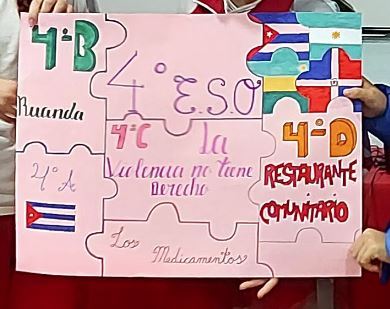 4ºB
Ruanda
4º E.S.O
4ºA
4ºC
La
Violencia no tiene
Derecho
Los
Medicamentos
4ºD
RESTAURANTE
COMUNITARIO